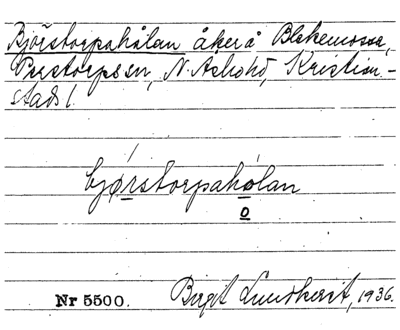 Björstorpahålan åker å Blekemossa,
Perstorp sn, N. Åsbohd, Kristian-
stads l.
bjørstorpaholan
o
Nr 5500. Birgit Lundkvist, 1936.